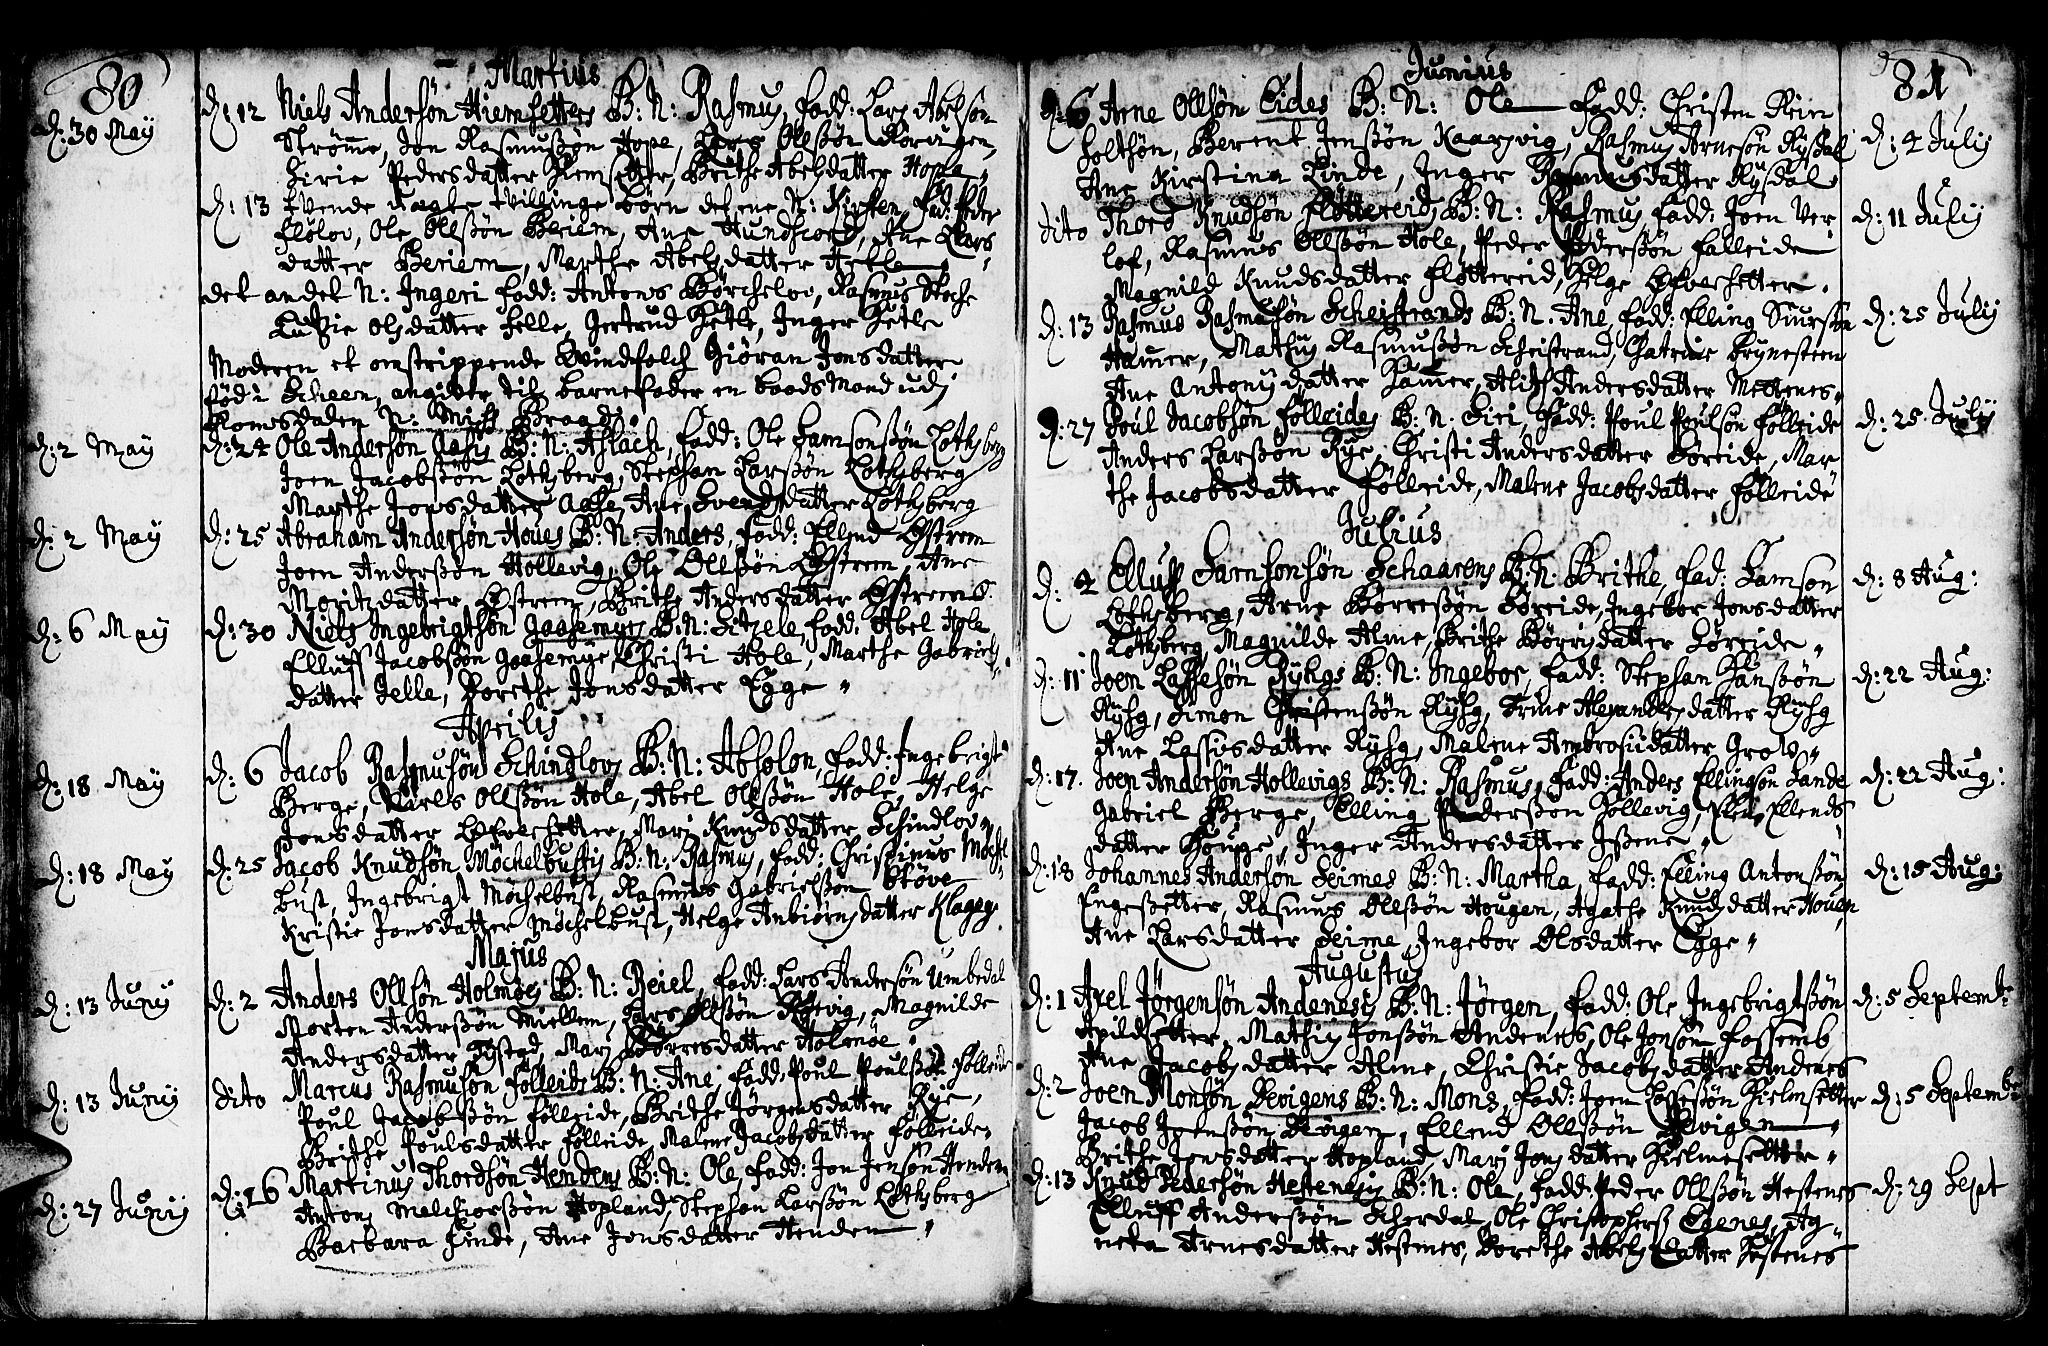 80
Martius
d: 30 May
d: 12 Niels Andersøn Hiemsetters B: N: Rasmus, fadd: Lars Abelsøn
Strømme, Jon Rasmussøn Hope, Lars Ollssøn
Pedersdatter Hiemsetter, Brithe Abelsdatter Hope
d: 13 Tvende Uægte tvillinge børn det ene N: Kirsten, fad: Peder
Ole Ollssøn Beriem, Ane Hundscord, Ane Lars
datter Beriem, Marthe Abelsdatter
det andet N: Ingeri fadd: Antons Rasmus
Olsdatter Gertrud Inger
Moderen et omstrippende Qvindfolch Giøran Jonsdatter
fød i angiver til barnefader en baads Mand udj
Romsdalen N:
d: 2 May
d: 24 Ole Andersøn Aasis B: N: Aslach, fadd: Ole Samsonssøn Lothsberg
Joen Jacobssøn Lothsberg, Stephan Larssøn Lothsberg
Marthe Jonsdatter Ane Svendsdatter Lothsberg
d: 2 May
d: 25 Abraham Andersøn Hoves B: N: Anders, fadd: Ellend Østrem
Joen Anderssøn Hollevig, Ole Ollssøn Østrem, Ane
Moritzdatter Østrem, Brithe Andersdatter Østrems
d: 6 May
d: 30 Niels Ingebrigtsøn Gaasemyrs B: N: fadd: Abel Hole
Elluff Jacobssøn Gaasemyr, Christi Hole, Marthe Gabriels
datter Dorethe Jonsdatter Egge
Aprilis
d: 18 May
d: 6 Jacob Rasmusøn Schindlovs B: N: Absolon, fadd: Ingebrigt
Berge, Ollssøn Hole, Abel Ollssøn Hole, Helge
Jonsdatter Marj Knudsdatter Schindlov
d: 18 May
d: 25 Jacob Knudsøn Møchelbustis B: N: Rasmus, fadd: Christinus Møchel
bust, Ingebrigt Møchelbust, Rasmus Gabrielssøn
Kristie Jonsdatter Møchelbust, Helge Anbiørnsdatter
Majus
d: 13 Juny
d: 2 Anders Ollsøn Holmøes B: N: Reiel, fadd: Lars Andersøn Umbedal
Morten Anderssøn Miellem, Lars Ollssøn Magnilde
Andersdatter Rystad, Marj Børresdatter Holmøe
d: 13 Junij
dito Marcus Rasmusøn Følleids B: N: Ane, fadd: Poul Poulssøn Følleide
Poul Jacobssøn Følleide, Brithe Jørgensdatter Rye,
Brithe Poulsdatter Følleide, Malene Jacobsdatter Følleide
d: 27 Junij
d: 16 Martinus Thordsøn Hendens B: N: Ole, fadd: Jon Jensøn Henden
Antons Melchiorssøn Hopland, Stephan Larssøn Lothsberg
Barbara Ane Jonsdatter Henden
81
Junius
d: 6 Arne Ollsøn Eides B: N: Ole fadd: Christen Rein
holtsøn, Berent Jenssøn Rasmus Arnesøn Rysdal
Ane Kirstina Linde, Inger Rasmusdatter Rysdal
d: 4 Julij
dito Thord Knudsøn Fløttereids B: N: Rasmus fadd: Joen Ver
lof, Rasmus Ollssøn Hole, Peder Pederssøn Falleide
Magnild Knudsdatter Fløttereid, Helge
d: 11 Julij
d: 13 Rasmus Rasmusøn Scheistrands B: N: Ane, fadd: Elling Siursøn
Hamer, Mathis Rasmussøn Scheistrand, Chatrine Brynesteen
Ane Antonijdatter Hamer, Andersdatter Mettenes
d: 25 Julij
d: 27 Poul Jacobsøn Følleides B: N: Siri, fadd: Poul Poulsøn Følleide
Anders Larssøn Rye, Christi Andersdatter Søreide, Mar
the Jacobsdatter Følleide, Malene Jacobsdatter Følleide
d: 25 Julij
Julius
d: 4 Elluff Samsonsøn Schaarens B: N: Brithe, fad: Samson
Lothsberg, Arne Børressøn Søreide, Ingebor Jonsdatter
Lothsberg, Magnilde Alme, Brithe Børrisdatter Søreide
d: 8 Aug:
d: 11 Joen Lassesøn B: N: Ingebor, fadd: Stephan Hanssøn
Rysg, Simon Christenssøn Rysg, Trine Alexandersdatter Rysg
Ane Lassisdatter Rysg, Malene Ambrosiidatter
d: 22 Aug:
d: 17. Joen Andersøn Hollevigs B: N: Rasmus, fadd: Anders Ellingsøn Sande
Gabriel Berge, Elling Pederssøn Hollevig, Ellend
datter Inger Andersdatter Issene
d: 22 Aug:
d: 18 Johannes Andersøn Seimes B: N: Martha, fadd: Elling Antonssøn
Engessetter, Rasmus Ollssøn Hougen, Agathe Knudsdatter Houen
Ane Larsdatter Seime, Ingebor Olsdatter Egge
d: 15 Aug:
Augustus
d: 1 Axel Jørgensøn Andenesis B: N: Jørgen, fadd: Ole Ingebrigtssøn
Apildsetter, Mathis Jonssøn Andenes, Ole Jonsøn Fossemb
Ane Jacobsdatter Alme, Christie Jacobsdatter Andenes
d: 5 Septembr
d: 2 Joen Monsøn Devigens B: N: Mons, fadd: Joen Lassessøn Hielmsetter
Jacob Jonssøn Devigen, Ellend Ollssøn Devigen
Brithe Jonsdatter Hopland, Marj Jonsdatter Hielmesetter
d: 5 Septembr
d: 13 Knud Pedersøn Hestenesis B: N: Ole, fadd: Peder Ollssøn Hestenes
Elluff Anderssøn Scherdal, Ole Christophers Eidenes, Ag
neta Arnesdatter Hestenes, Dorethe Abelsdatter Hestenes
d: 29 Sept